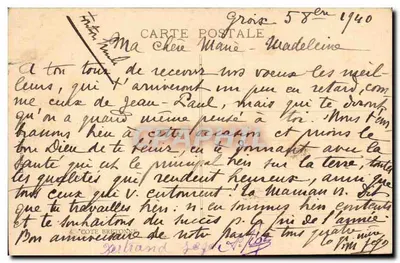 Groix 5 8bre 1940
CARTE POSTALE
Ma Chère Marie-Madeleine
A ton tour de recevoir nos voeux les meil-
leurs, qui t'arriveront un peu en retard, com-
me ceux de Jean-Paul, mais qui te diront
qu'on a quand même pensé à toi. Nous t'em-
brassons bien à cette occasion et prions le
bon Dieu de te bénir, en te donnant avec la
santé qui est le principal bien sur la terre, toutes
les qualités qui rendent heureux, ainsi que
tous ceux qui t'entourent. Ta Maman n. dit
que tu travailles bien, n. en sommes bien contents
et te souhaitons du succès p. la fin de l'année
Bon anniversaire de notre part à tous quatre